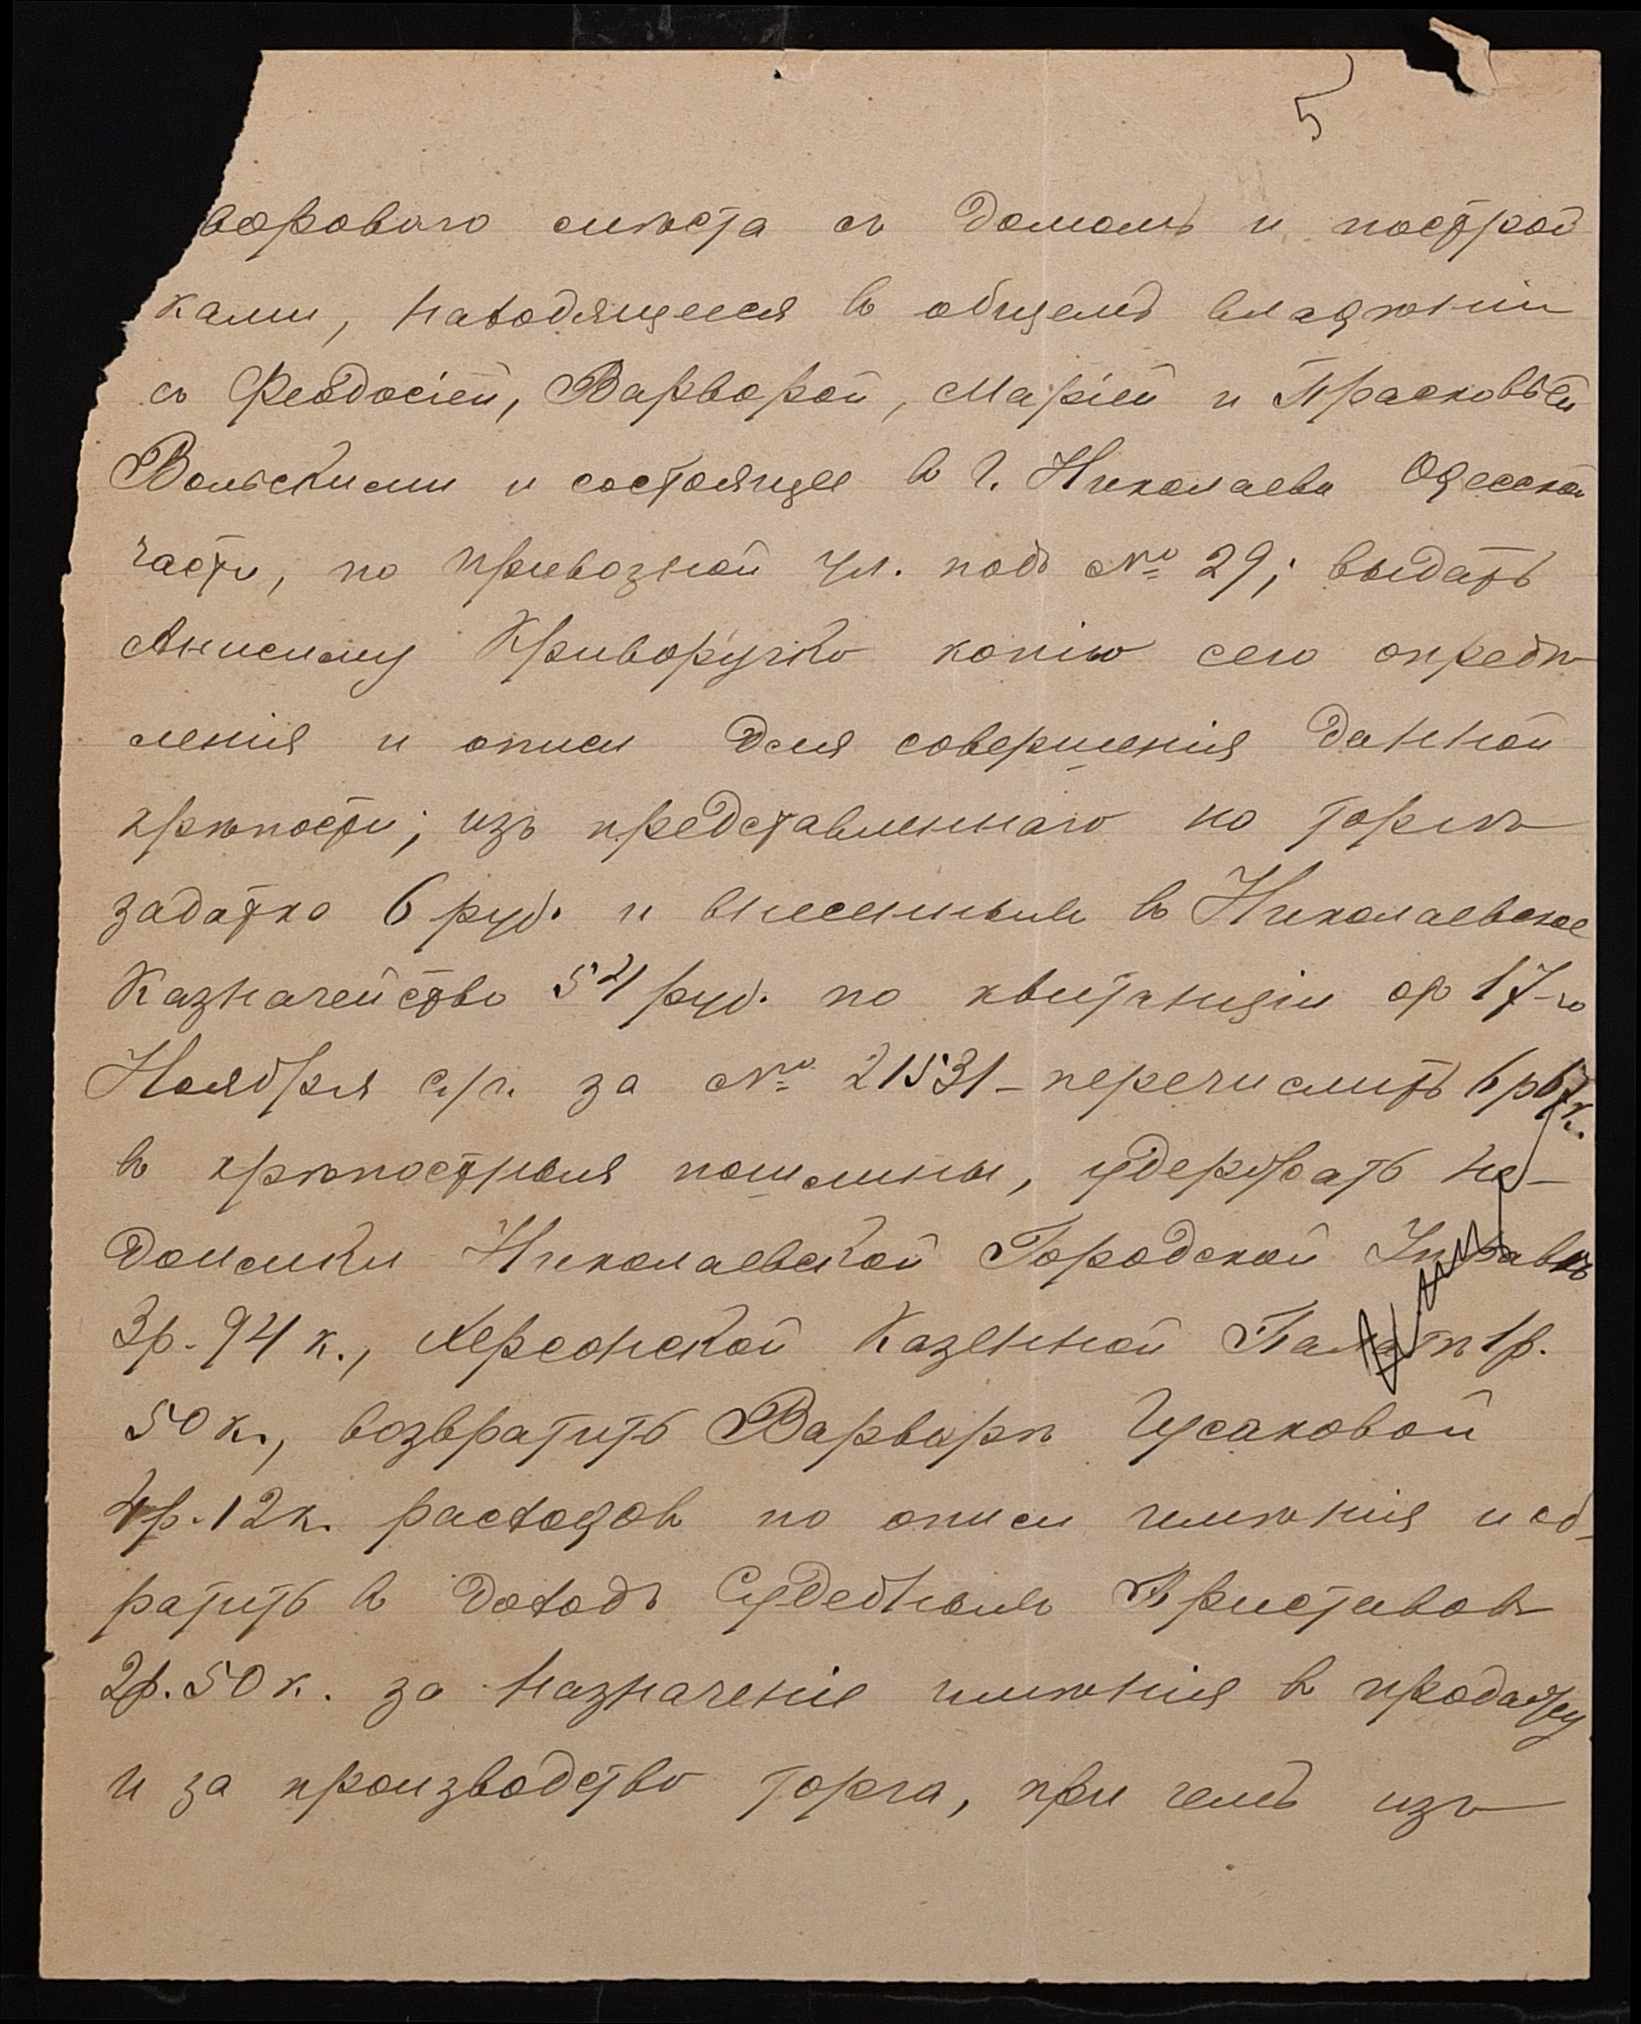 5
вороваго мѣста съ домомъ и построй
ками, находящееся въ общемъ владѣніи
съ Феодосіей, Варварой, Маріей и Прасковьей
Вольскими и состоящее въ г. Николаевѣ Одесской
части, по Привозной ул. подъ № 29; выдать
Анисиму Криворучко копію сего опредѣ
ленія и описи для совершенія данной
крѣпости; изъ представленнаго на торгъ
задатка 6 руб. и внесенныхъ въ Николаевское
Казначейство 54 руб. по квитанціи от 17-го
Ноября с/г. за № 21531 – перечислить 6 р 67 к.
въ крѣпостныя пошлины, удержать не-
доимки Николаевской Городской Управѣ
3 р. 94 к., Херсонской Казенной Палатѣ 1 р.
50 к., возвратить Варварѣ Гусаковой
4 р. 12 к. расходовъ по описи имѣнія и об-
ратить въ доходъ Судебныхъ Приставовъ
2 р. 50 к. за назначеніе имѣнія въ продажу
и за производство торга, при чемъ изъ